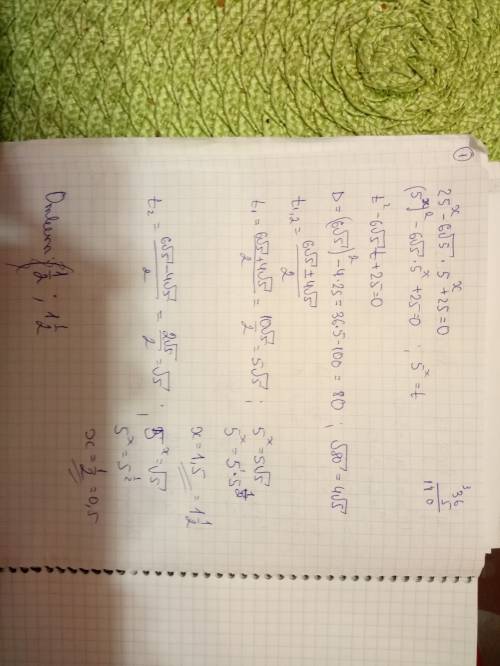 ①
25ˣ - 6√5 · 5ˣ + 25 = 0
(5ˣ)² - 6√5 · 5ˣ + 25 = 0 ; 5ˣ = t
t² - 6√5 t + 25 = 0
D = (6√5)² - 4·25 = 36·5 - 100 = 80 ; √80 = 4√5
t₁,₂ = (6√5 ± 4√5)/2
t₁ = (6√5 + 4√5)/2 = 10√5/2 = 5√5 ; 5ˣ = 5√5
5ˣ = 5¹ · 5^(1/2)
x = 1,5 = 1 1/2
t₂ = (6√5 - 4√5)/2 = 2√5/2 = √5 ; 5ˣ = √5
5ˣ = 5^(1/2)
x = 1/2 = 0,5
Ответ: 1/2 ; 1 1/2
³36
5